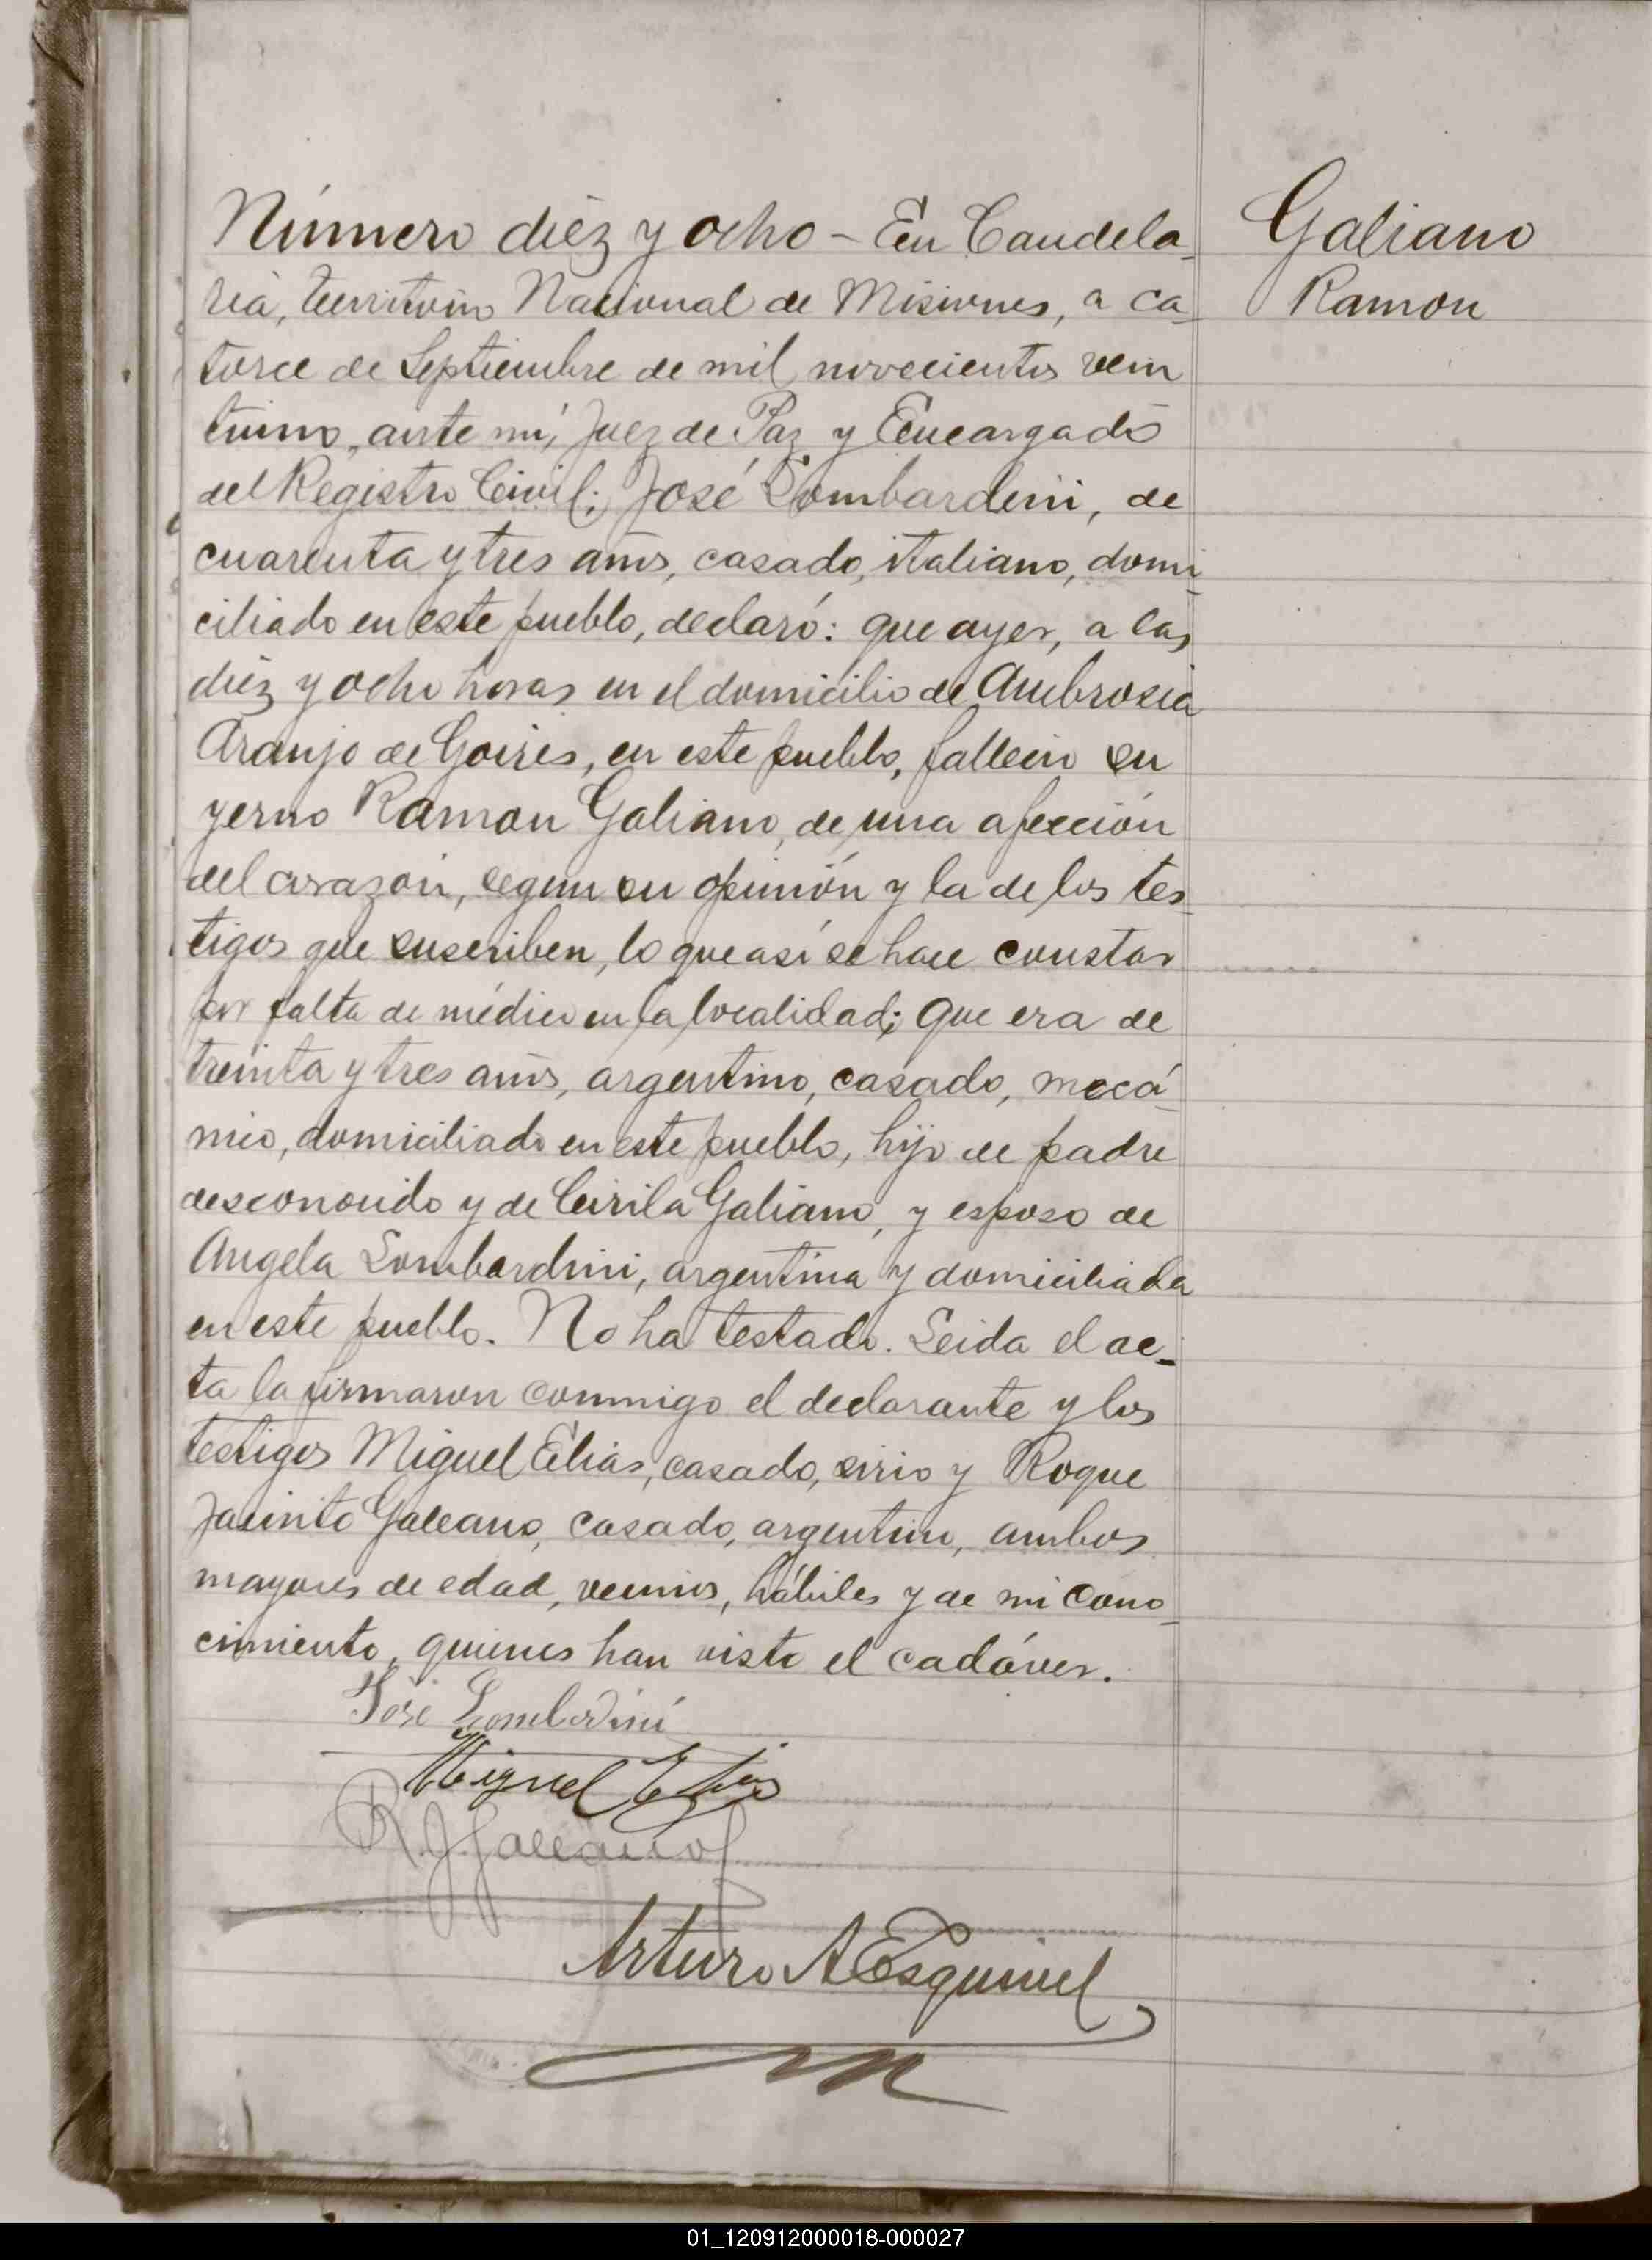 Número diéz y ocho - En Candela-
ria, territorio Nacional de Misiones, a ca-
torce de Septiembre de mil novecientos vein
tiuno, ante mí, Juez de Paz y Encargado
del Registro Civil: José Lombardini, de
cuarenta y tres años, casado, italiano, domi-
ciliado en este pueblo, declaró: que ayer, a las
diéz y ocho horas en el domicilio de Ambrosia
Araujo de Goires, en este pueblo, falleció su
yerno Ramon Galiano, de una afección
del corazón, segun su opinión y la de los tes-
tigos que suscriben, lo que así se hace constar
por falta de médico en la localidad; que era de
treinta y tres años, argentino, casado, mecá-
nico, domiciliado en este pueblo, hijo de padre
desconocido y de Cirila Galiano, y esposo de
Angela Lombardini, argentina y domiciliada
en este pueblo. No ha testado. Leida el ac-
ta la firmaron conmigo el declarante y los
testigos Miguel Elias, casado, sirio y Roque
Jacinto Galeano, casado, argentino, ambos
mayores de edad, vecinos, hábiles y de mi cono-
cimiento, quienes han visto el cadáver.
José Lombardini
Miguel Elias
R. J. Galeano
Arturo A Esquivel
Galiano
Ramon
01_120912000018-000027